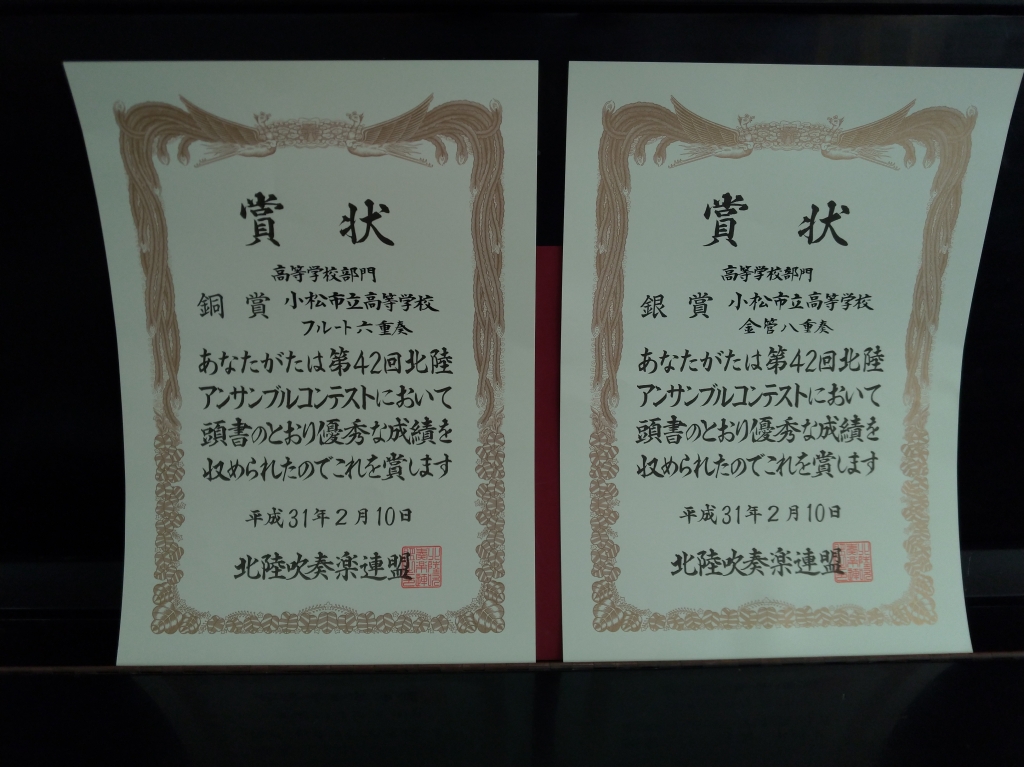 賞 状
高等学校部門
銅 賞 小松市立高等学校
フルート六重奏
あなたがたは第42回北陸
アンサンブルコンテストにおいて
頭書のとおり優秀な成績を
収められたのでこれを賞します
平成31年2月10日
北陸吹奏楽連盟
賞 状
高等学校部門
銀 賞 小松市立高等学校
金管八重奏
あなたがたは第42回北陸
アンサンブルコンテストにおいて
頭書のとおり優秀な成績を
収められたのでこれを賞します
平成31年2月10日
北陸吹奏楽連盟